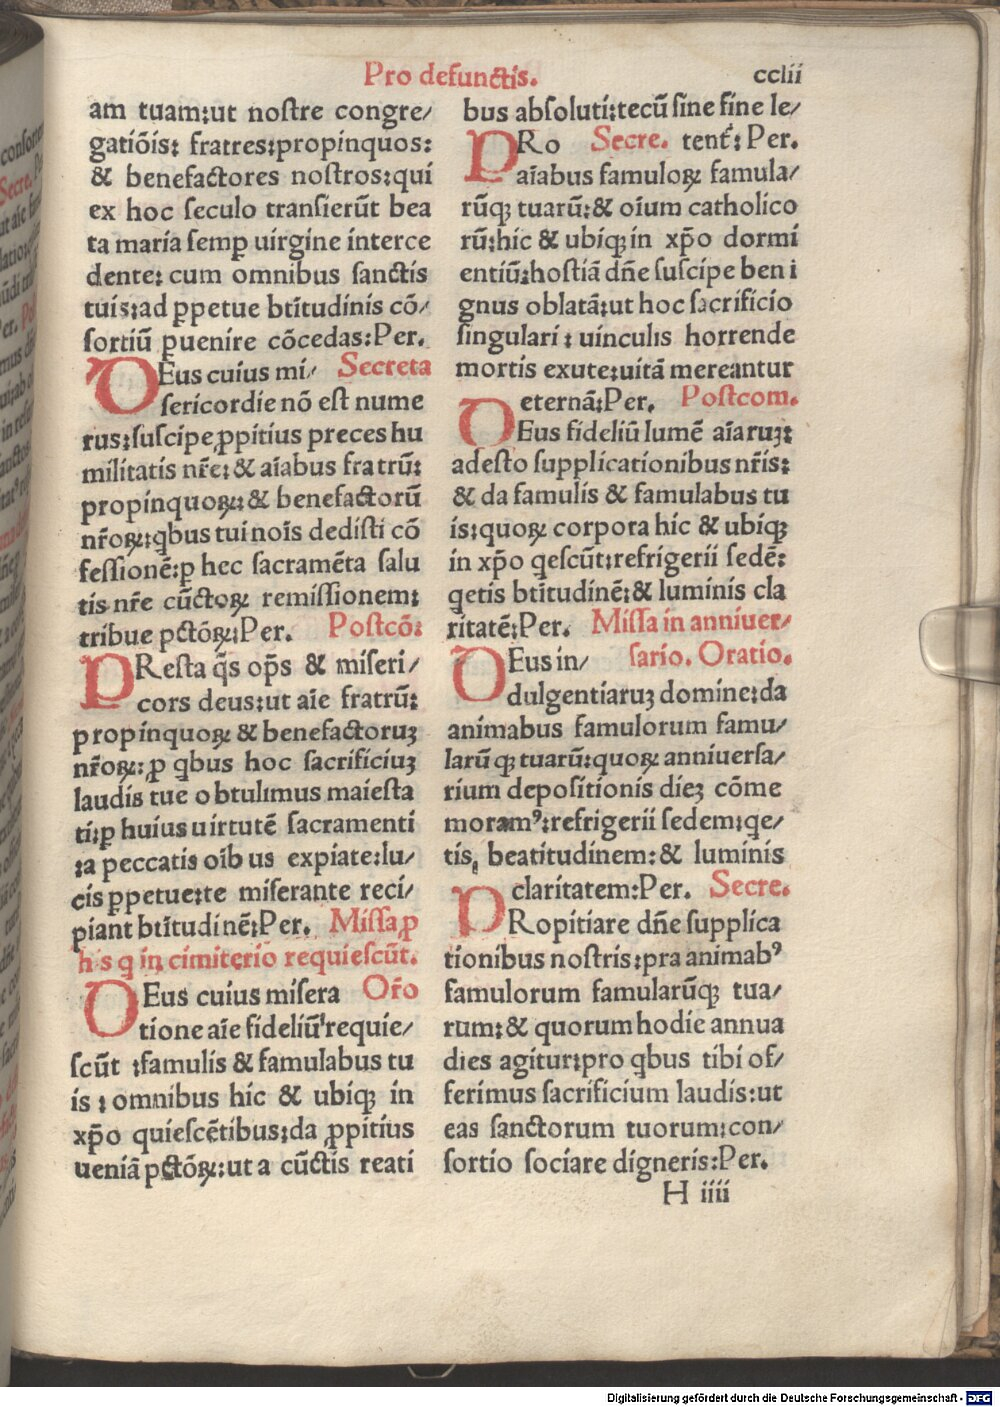 Pro defunctis.
cclii
am tuam:ut noſtre congre/
gatiōis: fratres:propinquos:
& benefactores noſtros:qui
ex hoc ſeculo tranſierūt bea
ta maria ſemꝑ uirgine interce
dente: cum omnibus ſanctis
tuis:ad ꝑpetue btītudinis cō/
ſortiū ꝑuenire cōcedas:Per.
DEus cuius mi/ Secreta
ſericordie nō eſt nume
rus:ſuſcipe ꝓpitius preces hu
militatis nr̄e:& aīabus fratrū:
propinquoꝝ:& benefactorū
nr̄oꝝ:qbus tui noīs dediſti cō
feſſionē:ꝑ hec ſacramēta ſalu
tis nr̄e cūctoꝝ remiſſionem:
tribue pctōꝝ:Per. Poſtcō:
PReſta q̄s op̄s & miſeri/
cors deus:ut aīe fratrū:
propinquoꝝ & benefactoruꝫ
nr̄oꝝ:ꝓ qbus hoc ſacrificiuꝫ
laudis tue obtulimus maieſta
ti:ꝑ huius uirtutē ſacramenti
:a peccatis oībus expiate:lu/
cis ꝑpetue:te miſerante reci/
piant btītudinē:Per. Miſſa ꝓ
his q in cimiterio requieſcūt.
DEus cuius miſera Or̄o
tione aīe fideliū requie/
ſcūt :famulis & famulabus tu
is : omnibus hic & ubiqꝫ in
xp̄o quieſcētibus:da ꝓpitius
ueniā pctōꝝ:ut a cūctis reati
bus abſoluti:tecū ſine fine le/
PRo Secre. tent̄: Per.
aīabus famuloꝝ famula/
rūqꝫ tuarū:& oīum catholico
rū:hic & ubiqꝫ in xp̄o dormi
entiū:hoſtiā dn̄e ſuſcipe beni
gnus oblatā:ut hoc ſacrificio
ſingulari : uinculis horrende
mortis exute:uitā mereantur
eternā:Per. Poſtcom.
DEus fideliū lumē aīaruꝫ:
adeſto ſupplicationibus nr̄is:
& da famulis & famulabus tu
is:quoꝝ corpora hic & ubiqꝫ
in xp̄o qeſcūt:refrigerii ſedē:
qetis btītudinē:& luminis cla
ritatē:Per. Miſſa in anniuer/
DEus in/ ſario. Oratio.
dulgentiaruꝫ domine:da
animabus famulorum famu/
larū qꝫ tuarū:quoꝝ anniuerſa/
rium depoſitionis dieꝫ cōme
moramꝰ:refrigerii ſedem:qe/
tis, beatitudinem:& luminis
claritatem:Per. Secre.
PRopitiare dn̄e ſupplica
tionibus noſtris:pra animabꝰ
famulorum famularūqꝫ tua/
rum:& quorum hodie annua
dies agitur:pro qbus tibi of/
ferimus ſacrificium laudis:ut
eas ſanctorum tuorum:con/
ſortio ſociare digneris:Per.
H iiii
Digitalisierung gefördert durch die Deutsche Forschungsgemeinschaft - DFG